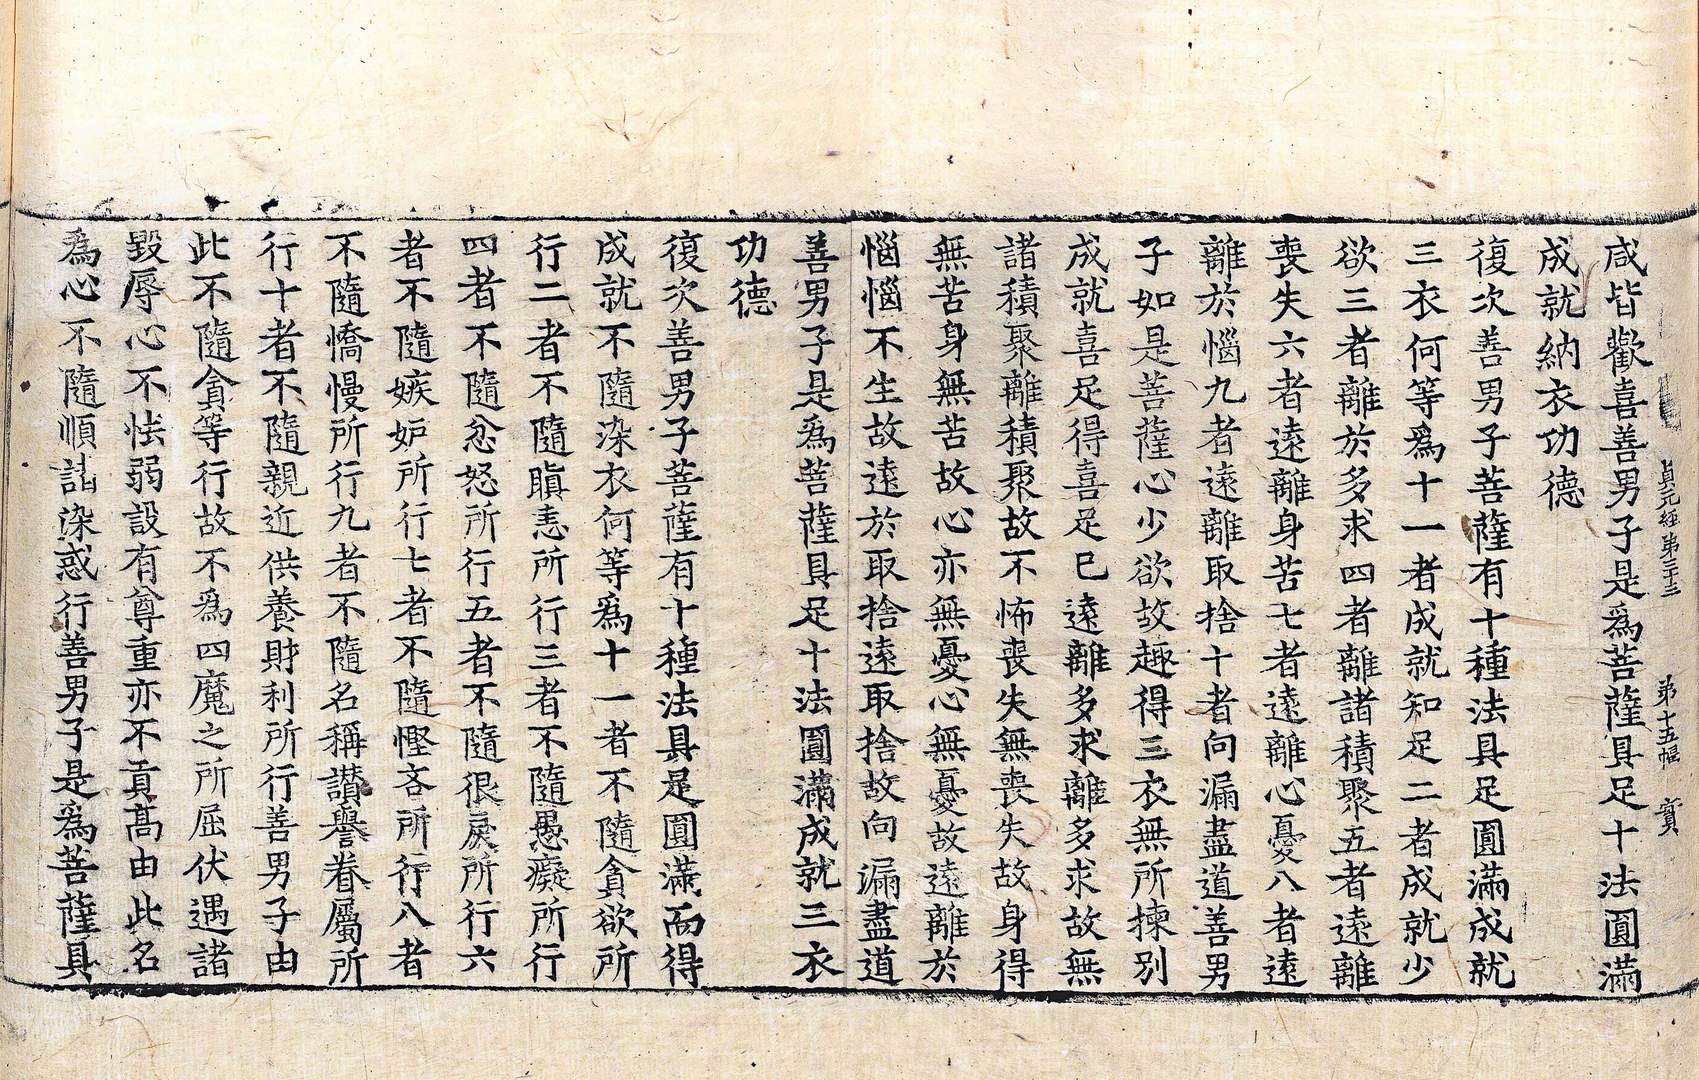 咸皆歡喜善男子是爲菩薩具足十法圓滿
貞元經第三十三 第十五幅 賨
成就納衣功德
復次善男子菩薩有十種法具足圓滿成就
三衣何等爲十一者成就知足二者成就少
欲三者離於多求四者離諸積聚五者遠離
喪失六者遠離身苦七者遠離心憂八者遠
離於惱九者遠離取捨十者向漏盡道善男
子如是菩薩心少欲故趣得三衣無所揀別
成就喜足得喜足已遠離多求離多求故無
諸積聚離積聚故不怖喪失無喪失故身得
無苦身無苦故心亦無憂心無憂故遠離於
惱惱不生故遠於取捨遠取捨故向漏盡道
善男子是爲菩薩具足十法圓滿成就三衣
功德
復次善男子菩薩有十種法具足圓滿而得
成就不隨染衣何等爲十一者不隨貪欲所
行二者不隨瞋恚所行三者不隨愚癡所行
四者不隨忿怒所行五者不隨很戾所行六
者不隨嫉妒所行七者不隨慳吝所行八者
不隨憍慢所行九者不隨名稱讃譽眷屬所
行十者不隨親近供養財利所行善男子由
此不隨貪等行故不爲四魔之所屈伏遇諸
毀辱心不怯弱設有尊重亦不貢高由此名
爲心不隨順詿染惑行善男子是爲菩薩具